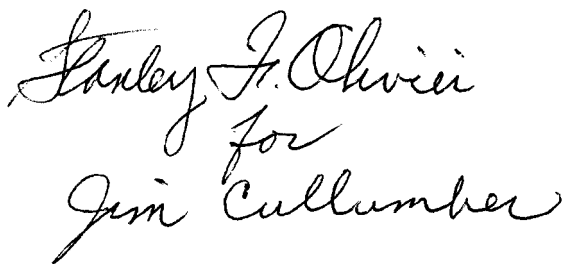 Stanley F. Olivier
for
Jim Cullumber